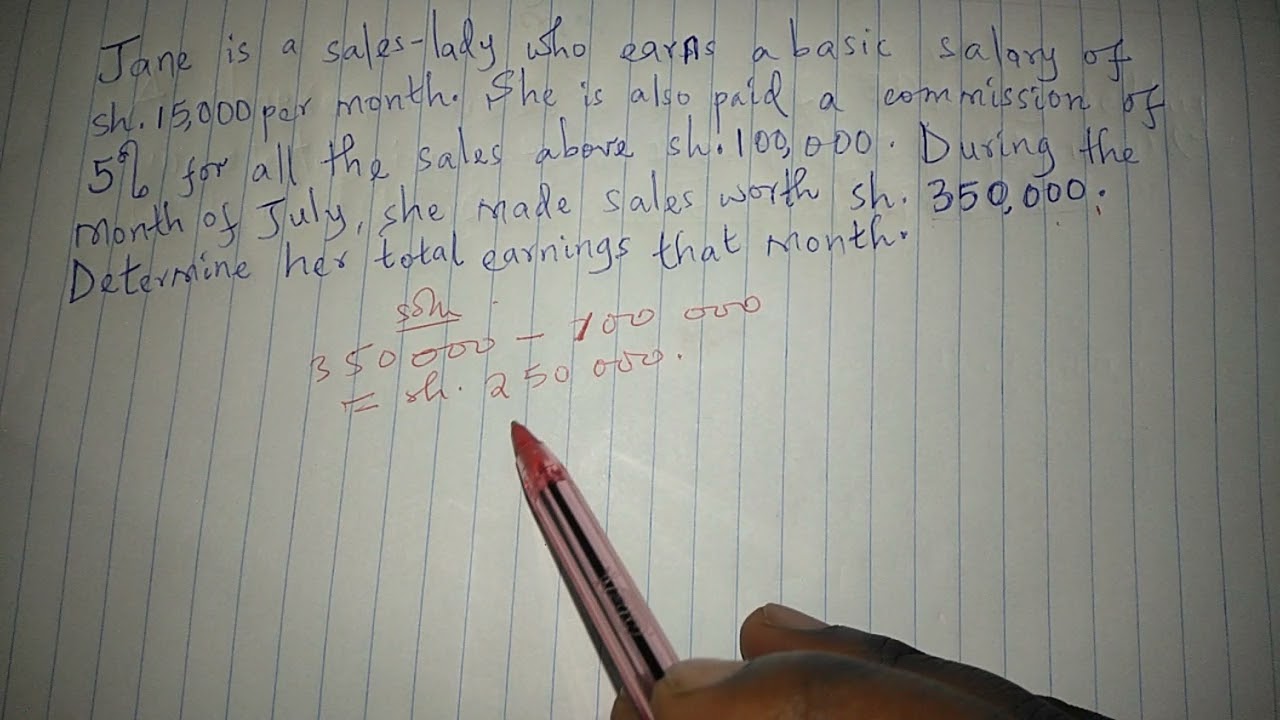 Jane is a sales-lady who earns a basic salary of
sh. 15,000 per month. She is also paid a commission of
5% for all the sales above sh. 100,000. During the
month of July, she made sales worth sh. 350,000.
Determine her total earnings that month.
350 000 - 100 000
= sh. 250 000.